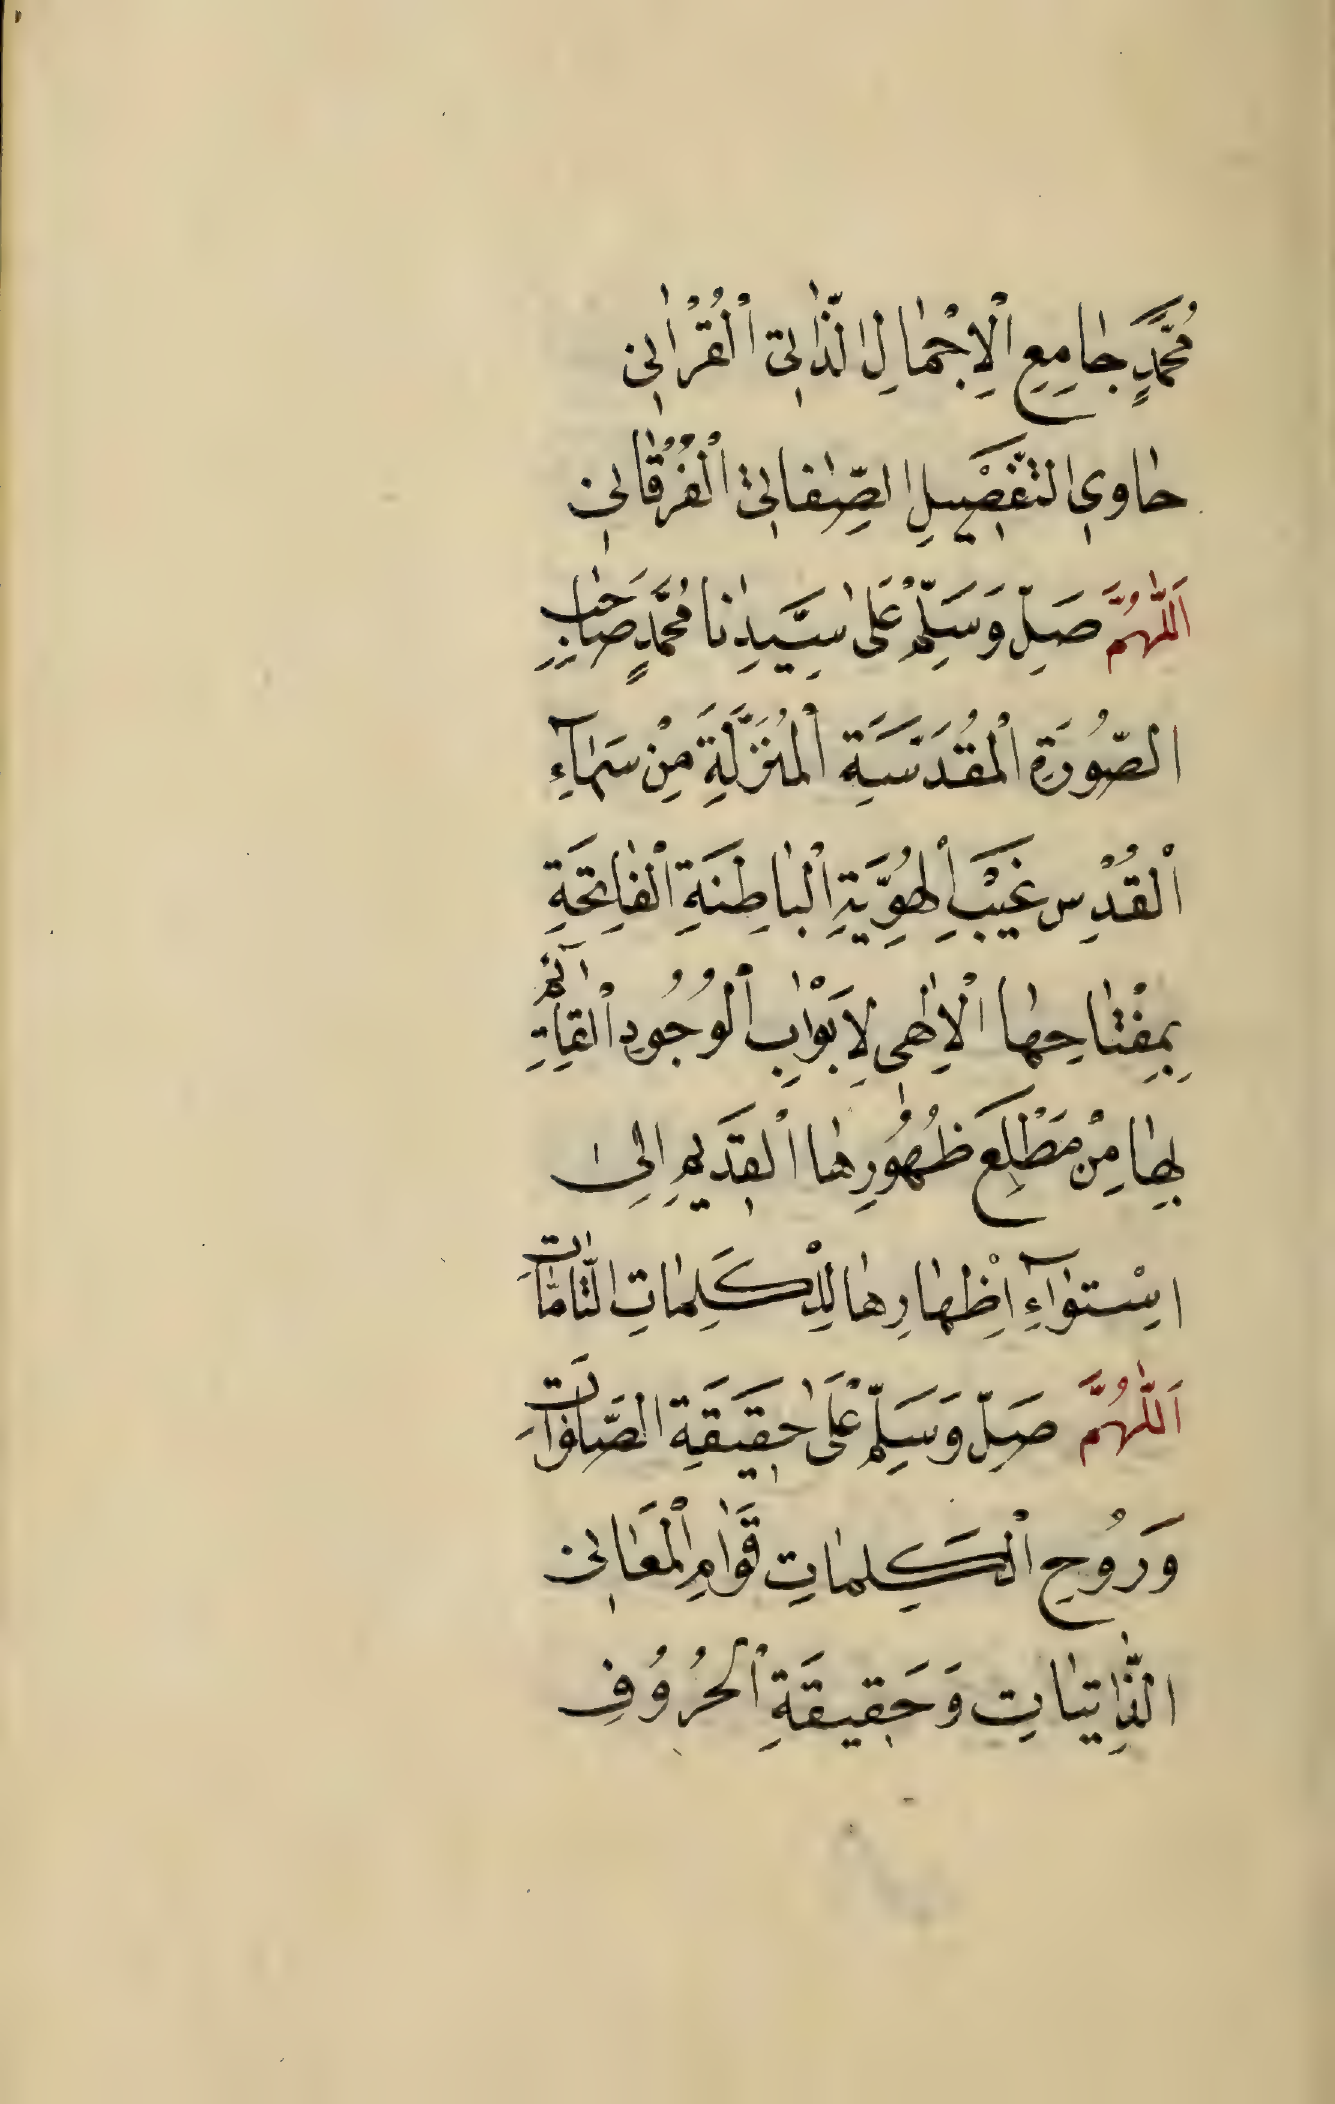 مُحَمَّدٍ جَامِعِ الْاِجْمَالِ الذَّاتِى الْقُرْاٰنِى
حَاوِى التَّفْصِيلِ الصِّفَاتِى الْفُرْقَانِى
اَللّٰهُمَّ صَلِّ وَسَلِّمْ عَلٰى سَيِّدِنَا مُحَمَّدٍ صَاحِبِ
الصُّورَةِ الْمُقَدَّسَةِ الْمُنَزَّلَةِ مِنْ سَمَآءِ
الْقُدْسِ غَيْبِ الْهُوِيَّةِ الْبَاطِنَةِ الْفَاتِحَةِ
بِمِفْتَاحِهَا الْاِلٰهِى لِاَبْوَابِ الْوُجُودِ الْقَائِمَةِ
بِهَا مِنْ مَطْلَعِ ظُهُورِهَا الْقَدِيمِ اِلٰى
اسْتِوَآءِ اِظْهَارِهَا لِلْكَلِمَاتِ التَّامَّاتِ
اَللّٰهُمَّ صَلِّ وَسَلِّمْ عَلٰى حَقِيقَةِ الصَّلَوَاتِ
وَرُوحِ الْكَلِمَاتِ قَوَامِ الْمَعَانِى
الذَّاتِيَاتِ وَحَقِيقَةِ الْحُرُوفِ